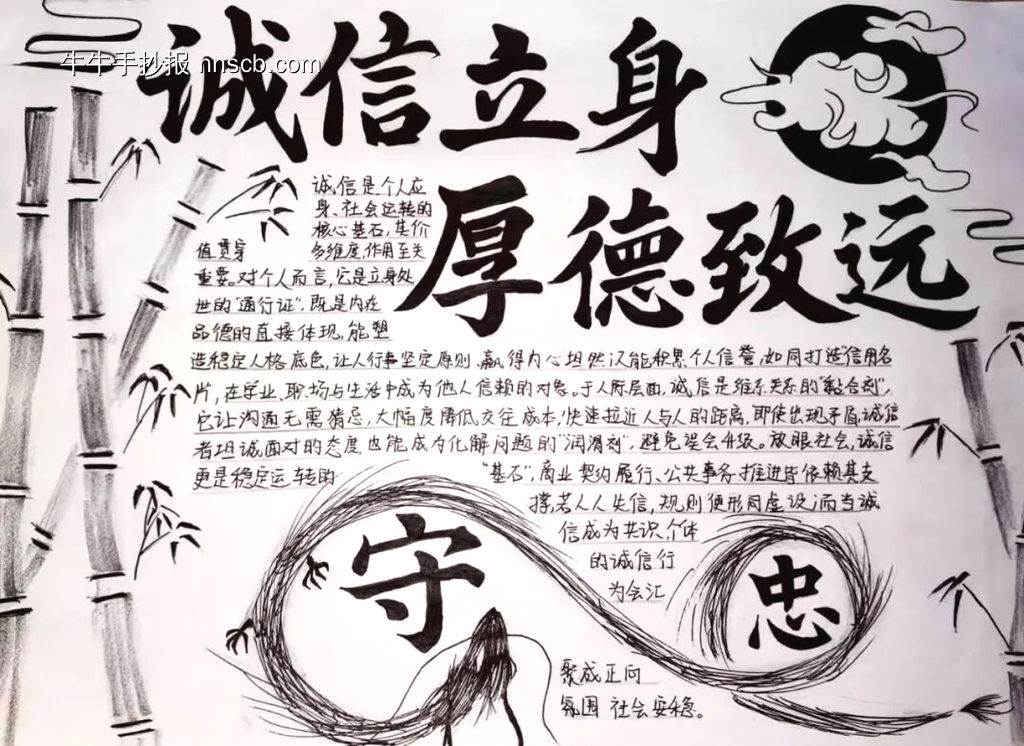 牛牛手抄报 nnscb.com
诚信立身
厚德致远
诚信是个人应
身、社会运转的
核心基石,其价
值贯穿 多维度,作用至关
重要。对个人而言,它是立身处
世的“通行证”,既是内在
品德的直接体现,能塑
造稳定人格底色,让人行事坚定原则、赢得内心坦然,又能积累个人信誉,如同打造“信用名
片,在学业、职场与生活中成为他人信赖的对象。于人际层面,诚信是维系关系的“黏合剂”,
它让沟通无需猜忌,大幅度降低交往成本,快速拉近人与人的距离,即使出现矛盾,诚信
者坦诚面对的态度也能成为化解问题的“润滑剂”,避免误会升级。放眼社会,诚信
更是稳定运转的 “基石”,商业契约履行、公共事务推进皆依赖其支
撑,若人人失信,规则便形同虚设,而当诚
信成为共识,个体
的诚信行
为会汇
守
忠
聚成正向
氛围 社会安稳。